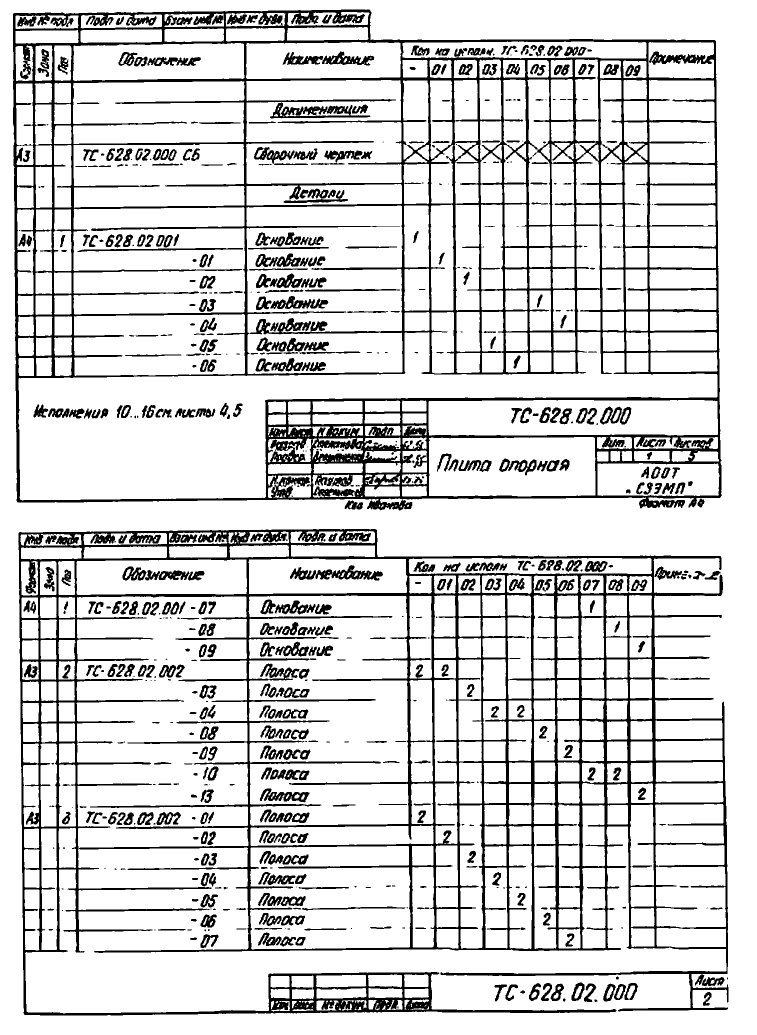 Инв № подл Подп и дата Взам инв № Инв № дубл. Подп. и дата
Формат Зона Поз Обозначение Наименование Кол на исполн. ТС-628.02.000- Примечание
- 01 02 03 04 05 06 07 08 09
Документация
А3 ТС-628.02.000 СБ Сборочный чертеж
Детали
А4 1 ТС-628.02.001 Основание 1
-01 Основание 1
-02 Основание 1
-03 Основание 1
-04 Основание 1
-05 Основание 1
-06 Основание 1
Исполнения 10...16 см. листы 4,5
ТС-628.02.000
Изм Лист № докум Подп Дата
Разраб Степанова
Плита опорная
Лит. Лист Листов
1 5
Н.контр.
Утв
АООТ
"СЗЭМП"
Коп Иванова Формат А4
Инв № подл Подп. и дата Взам инв № Инв № дубл. Подп. и дата
Формат Зона Поз Обозначение Наименование Кол на исполн ТС-628.02.000-
- 01 02 03 04 05 06 07 08 09
А4 1 ТС-628.02.001 -07 Основание 1
-08 Основание 1
-09 Основание 1
А3 2 ТС-628.02.002 Полоса 2 2
-03 Полоса 2
-04 Полоса 2 2
-08 Полоса 2
-09 Полоса 2
-10 Полоса 2 2
-13 Полоса 2
А3 ТС-628.02.002 -01 Полоса 2
-02 Полоса 2
-03 Полоса 2
-04 Полоса 2
-05 Полоса 2
-06 Полоса 2
-07 Полоса 2
ТС-628.02.000
Лист
2
Изм Лист № докум. Подп. Дата